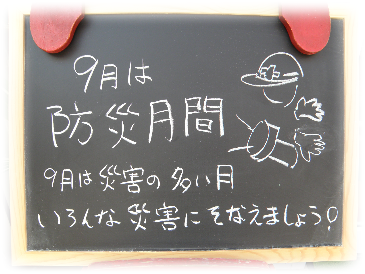 9月は
防災月間
9月は災害の多い月
いろんな災害にそなえましょう!